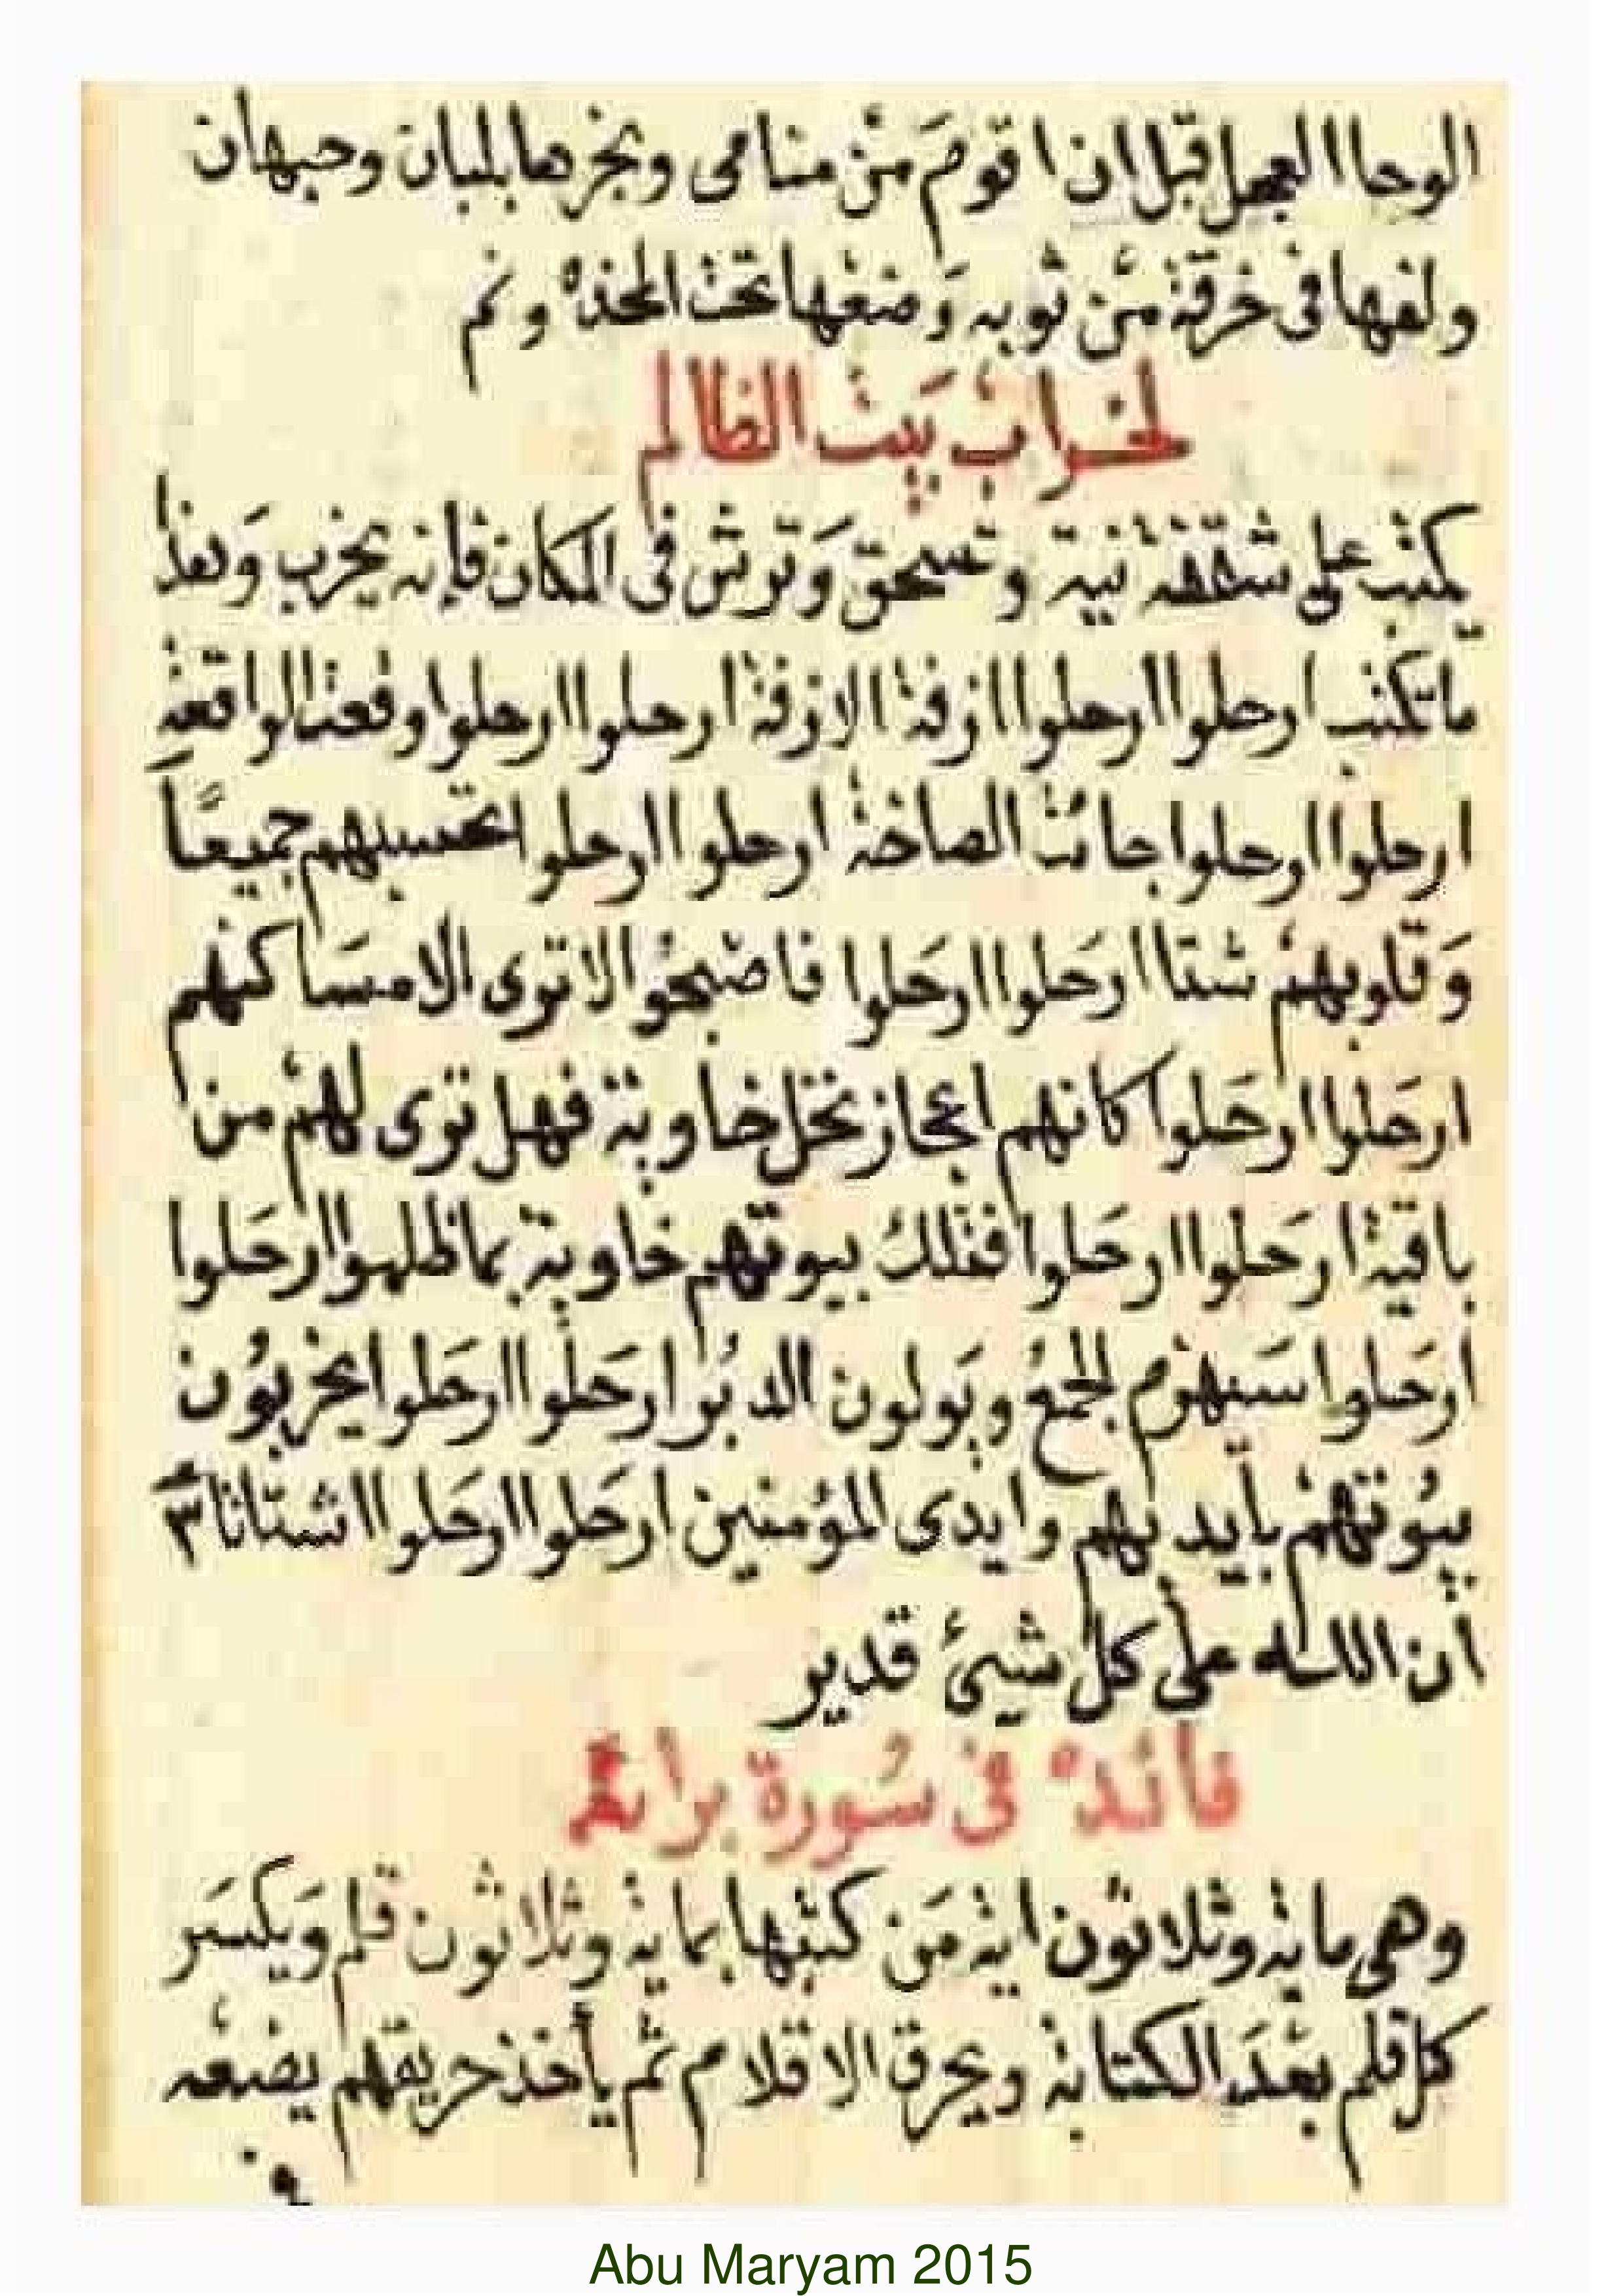 الوحا العجل قبل ان اقوم من منامى وبخرها بلبان وحبهان
ولفها فى خرقة من ثوبه وضعها تحت المخده ونم
لخراب بيت الظالم
يكتب على شقفه نيه وتسحق وترش فى المكان فإنه يخرب وهذا
ما تكتب ارحلوا ارحلوا ازفة الازفة ارحلوا ارحلوا وقعت الواقعة
ارحلوا ارحلوا جائت الصاخة ارحلوا ارحلوا تحسبهم جميعًا
وقلوبهم شتا ارحلوا ارحلوا فاصبحوا لا ترى الا مساكنهم
ارحلوا ارحلوا كانهم اعجاز نخل خاوية فهل ترى لهم من
باقية ارحلوا ارحلوا فتلك بيوتهم خاوية بما ظلموا ارحلوا
ارحلوا سيهزم الجمع ويولون الدبر ارحلوا ارحلوا يخربون
بيوتهم بأيديهم وايدى المؤمنين ارحلوا ارحلوا اشتاتا ٣
ان الله على كل شيئ قدير
فائده فى سورة براءة
وهى ماية وثلاثون اية من كتبها بماية وثلاثون قلم ويكسر
كل قلم بعد الكتابة ويحرق الاقلام ثم يأخذ حريقهم يضعه
Abu Maryam 2015